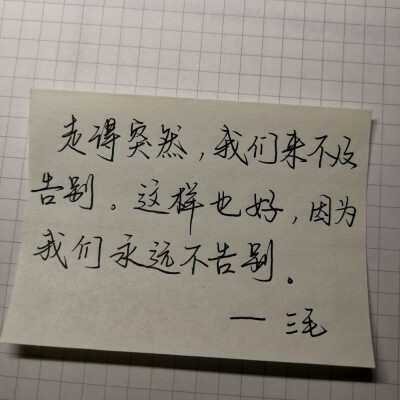 走得突然，我们来不及
告别。这样也好，因为
我们永远不告别。
— 三毛